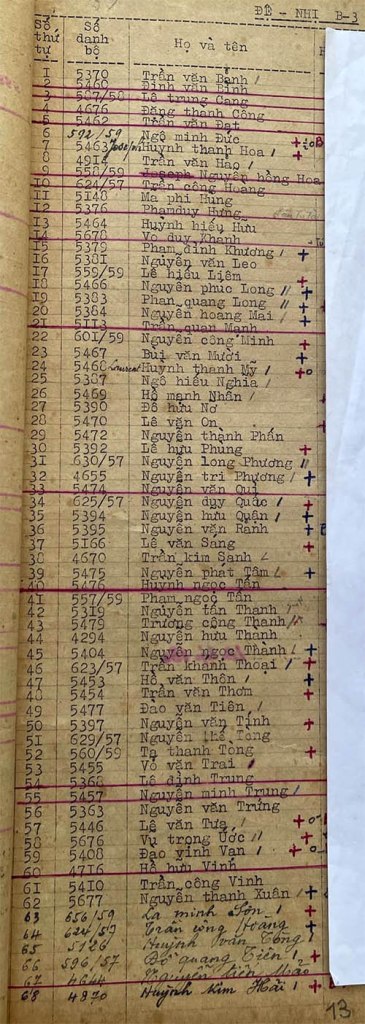 ĐỆ - NHỊ B-3
Số thứ tự Số danh bộ Họ và tên
1 5370 Trần văn Bảnh
2 5460 Đinh văn Bình
3 587/58 Lê trung Cang
4 4676 Đặng thành Công
5 5462 Trần văn Đạt
6 592/59 Ngô minh Đức
7 5463 Joseph Huỳnh thanh Hoa
8 4914 Trần văn Hào
9 558/59 Joseph Nguyễn hồng Hoa
10 624/57 Trần công Hoang
11 5148 Ma phi Hùng
12 5376 Phạm duy Hưng
13 5464 Huỳnh hiếu Hữu
14 5678 Võ duy Khanh
15 5379 Phạm đình Khương
16 5381 Nguyễn văn Leo
17 559/59 Lê hiếu Liêm
18 5466 Nguyễn phúc Long
19 5383 Phan quang Long
20 5384 Nguyễn hoàng Mai
21 5113 Trần quan Mạnh
22 601/59 Nguyễn công Minh
23 5467 Bùi văn Mười
24 5468 Laurent Huỳnh thanh Mỹ
25 5387 Ngô hiếu Nghĩa
26 5469 Hồ mạnh Nhân
27 5390 Đỗ hữu Nơ
28 5470 Lê văn On
29 5472 Nguyễn thành Phán
30 5392 Lê hữu Phung
31 630/57 Nguyễn long Phương
32 4655 Nguyễn tri Phương
33 5474 Nguyễn văn Quí
34 625/57 Nguyễn duy Quảo
35 5394 Nguyễn hữu Quên
36 5395 Nguyễn văn Rảnh
37 5166 Lê văn Sang
38 4670 Trần kim Sanh
39 5475 Nguyễn phát Tâm
40 5476 Huỳnh ngọc Tân
41 557/59 Phạm ngọc Tấn
42 5319 Nguyễn tấn Thanh
43 5479 Trương công Thạnh
44 4294 Nguyễn hữu Thanh
45 5404 Nguyễn ngọc Thành
46 623/57 Trần khánh Thoại
47 5453 Hồ văn Thôn
48 5454 Trần văn Thơm
49 5477 Đào văn Tiên
50 5397 Nguyễn văn Tính
51 629/57 Nguyễn thế Tòng
52 560/59 Tạ thanh Tòng
53 5455 Võ văn Trai
54 5368 Lê đình Trung
55 5457 Nguyễn minh Trung
56 5363 Nguyễn văn Trứng
57 5446 Lê văn Tựa
58 5676 Vũ trọng Ước
59 5408 Đào vinh Vạn
60 4716 Hồ hữu Vinh
61 5410 Trần công Vinh
62 5677 Nguyễn thanh Xuân
63 656/59 La minh Sơn
64 624/57 Trần công Hoang
65 5126 Huỳnh văn Tòng
66 596/57 Đỗ quang Tiên
67 4644 Nguyễn tiến Mão
68 4870 Huỳnh kim Hải
13